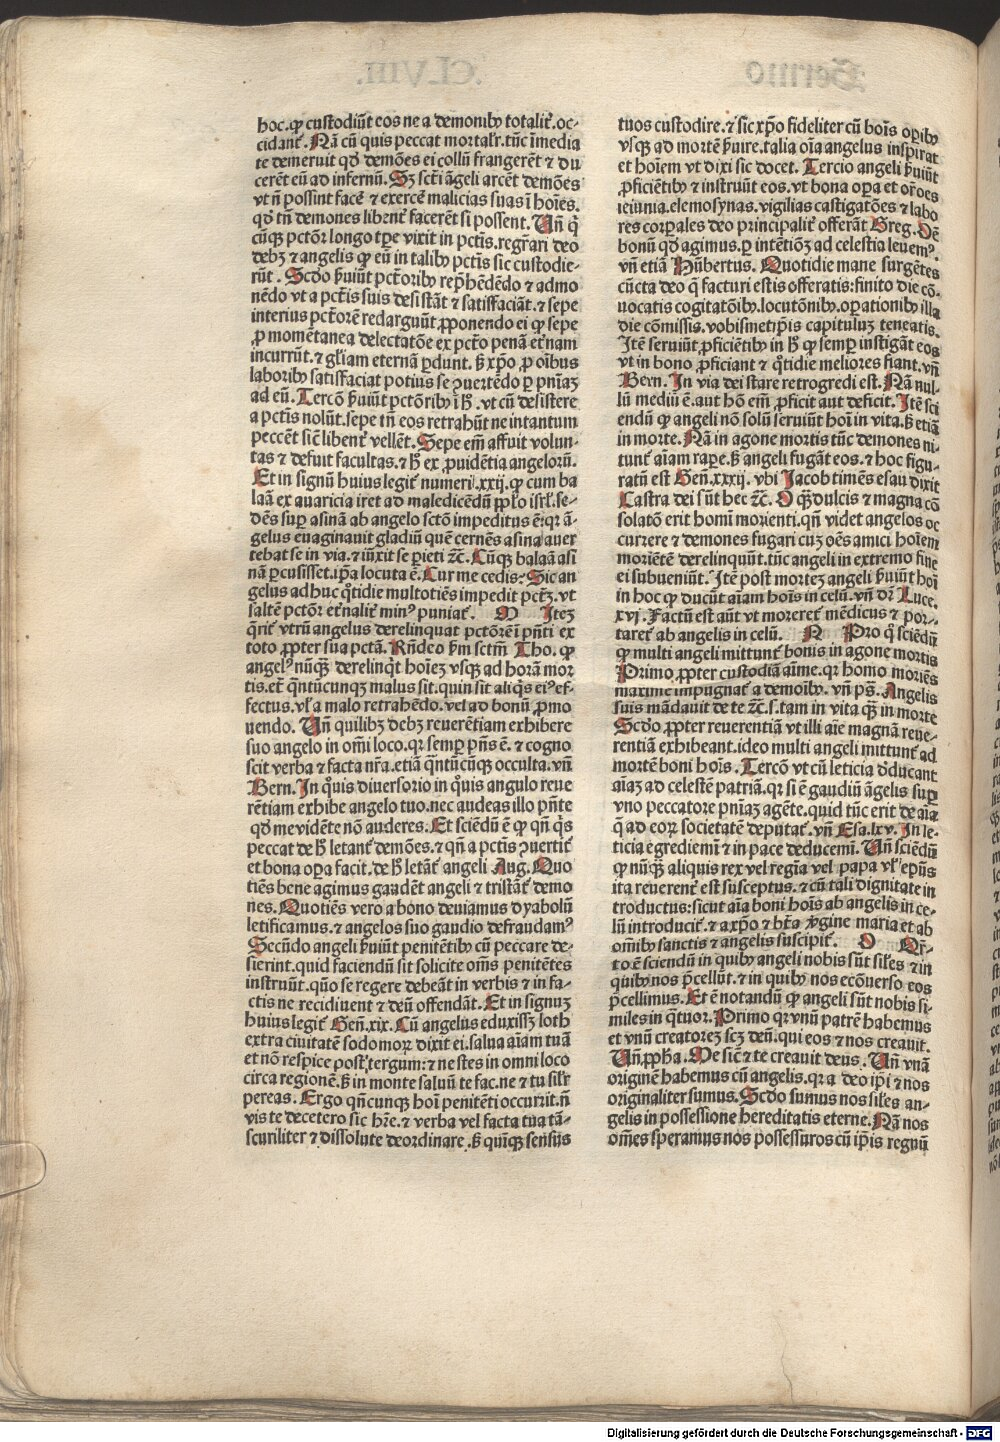 hoc. ꝙ custodiūt eos ne a demonibꝰ totalit̄. oc-
cidant̄. Nā cū quis peccat mortalr̄. tūc īmedia
te demeruit qd̄ demōes ei collū frangerēt ⁊ du
cerēt eū ad infernū. Sꝫ sct̄i āgeli arcēt demōes
vt n̄ possint facē ⁊ exercē malicias suas ī hoīes.
qd̄ tn̄ demones libent̄ facerēt si possent. Un̄ q̄
cūqꝫ pctōr longo tꝑe vixit in pctīs. regr̄ari deo
debꝫ ⁊ angelis ꝙ eū in talibꝰ pctīs sic custodie-
rūt. Scdo ꝓuiūt pctōribꝰ rep̄hēdēdo ⁊ admo
nēdo vt a pctīs suis desistāt ⁊ satisfaciāt. ⁊ sepe
interius pctōrē redarguūt ꝓponendo ei ꝙ sepe
ꝓ momētanea delectatōe ex pctō penā et̄nam
incurrūt. ⁊ gl̄iam eternā ꝑdunt. ẞ xp̄o ꝓ oībus
laboribꝰ satisfaciat potius se ↄuertēdo ꝑ pn̄iaꝫ
ad eū. Tercō ẞuiūt pctōribꝰ ī h̄. vt cū desistere
a pctīs nolūt. sepe tn̄ eos retrahūt ne intantum
peccēt sic̄ libent̄ vellēt. Sepe em̄ affuit volun-
tas ⁊ defuit facultas. ⁊ h̄ ex ꝓuidētia angelorū.
Et in signū huius legit̄ numeri. xxij. ꝙ cum ba
laā ex auaricia iret ad maledicēdū ꝓp̄lo isrl̄. se-
dēs suꝑ asinā ab angelo sctō impeditus ē: qr ā-
gelus euaginauit gladiū quē cernēs asina auer
tebat se in via. ⁊ iūxit se ꝑieti ⁊c̄. Cūqꝫ balaā asi
nā ꝑcusisset. ip̄a locuta ē. Cur me cedis: Sic an
gelus adhuc qͦtidie multotiēs impedit pctꝫ. vt
saltē pctōr et̄nalit̄ minꝰ puniat̄. M Itez
q̄rit̄ vtrū angelus derelinquat pctōrē ī pn̄ti ex
toto ꝓpter sua pctā. Rn̄deo ẞm sctm̄ Tho. ꝙ
angelꝰ nūqꝫ derelinqͥt hoīez vsqꝫ ad horā mor
tis. et̄ qn̄tūcunqꝫ malus sit. quin sit aliqͥs eiꝰ ef-
fectus. vl̄ a malo retrahēdo. vel ad bonū ꝓmo
uendo. Un̄ quilibꝫ debꝫ reuerētiam exhibere
suo angelo in om̄i loco. qr semꝑ pn̄s ē. ⁊ cogno
scit verba ⁊ facta nr̄a. etiā qn̄tūcūqꝫ occulta. vn̄
Bern. In qͦuis diuersorio in qͦuis angulo reue
rētiam exhibe angelo tuo. nec audeas illo pn̄te
qd̄ me vidēte nō auderes. Et sciēdū ē ꝙ qn̄ qͥs
peccat de h̄ letant̄ demōes. ⁊ qn̄ a pctīs ↄuertit̄
et bona oꝑa facit. de h̄ letāt̄ angeli Aug. Quo
tiēs bene agimus gaudēt angeli ⁊ tristāt̄ demo
nes. Quotiēs vero a bono deuiamus dyabolū
letificamus. ⁊ angelos suo gaudio defraudamꝰ
Secūdo angeli ẞuiūt penitētibꝰ cū peccare de-
sierint. quid faciendū sit solicite om̄s penitētes
instruūt. qūo se regere debeāt in verbis ⁊ in fa-
ctis ne recidiuent ⁊ deū offendāt. Et in signuꝫ
huius legit̄ Gen̄. xix. Cū angelus eduxissꝫ loth
extra ciuitatē sodomoꝝ dixit ei. salua aīam tuā
et nō respice post tergum: ⁊ ne stes in omni loco
circa regionē. ẞ in monte saluū te fac. ne ⁊ tu silr̄
pereas. Ergo qn̄cunqꝫ hoī penitēti occurrit. n̄
vis te decetero sic hr̄e. ⁊ verba vel facta tua tā-
scurriliter ⁊ dissolute deordinare. ẞ quīqꝫ sensus
tuos custodire. ⁊ sic xp̄o fideliter cū boīs oꝑibꝰ
vsqꝫ ad mortē ẞuire. talia oīa angelus inspirat
et hoīem vt dixi sic docet. Tercio angeli ẞuiūt
ꝓficiētibꝰ ⁊ instruūt eos. vt bona oꝑa et or̄oes
ieiunia. elemosynas. vigilias castigatōes ⁊ labo
res corꝑales deo principalit̄ offerāt Greg. Oē
bonū qd̄ agimus. ꝑ intētiōꝫ ad celestia leuemꝰ.
vn̄ etiā Hūbertus. Quotidie mane surgētes
cūcta deo q̄ facturi estis offeratis: finito die cō-
uocatis cogitatōibꝰ. locutōnibꝰ. oꝑationibꝰ illa
die cōmissis. vobismetip̄is capituluꝫ teneatis.
Itē seruiūt ꝓficiētibꝰ in h̄ ꝙ semꝑ instigāt eos
vt in bono ꝓficiant ⁊ qͦtidie meliores fiant. vn̄
Bern. In via dei stare retrogredi est. Nā nul-
lū mediū ē. aut hō em̄ ꝓficit aut deficit. Itē sci
endū ꝙ angeli nō solū seruiūt hoī in vita. ẞ etiā
in morte. Nā in agone mortis tūc demones ni-
tunt̄ aīam raꝑe. ẞ angeli fugāt eos. ⁊ hoc figu-
ratū est Gen̄. xxxij. vbi Jacob timēs esau dixit
Castra dei sūt hec ⁊c̄. O qꝫ dulcis ⁊ magna cō
solatō erit homī morienti. qn̄ videt angelos oc
currere ⁊ demones fugari cuꝫ oēs amici hoīem
moriētē derelinquūt. tūc angeli in extremo fine
ei subueniūt. Itē post mortez angeli ẞuiūt hoī
in hoc ꝙ ducūt aīam hoīs in celū. vn̄ dr̄ Luce.
xvj. Factū est aūt vt moreret̄ mēdicus ⁊ por-
taret̄ ab angelis in celū. N Pro q̄ sciēdū
ꝙ multi angeli mittunt̄ bonis in agone mortis
Primo ꝓpter custodiā aīme. qr homo moriēs
maxime impugnat̄ a demoībꝰ. vn̄ ps̄. Angelis
suis mādauit de te ⁊c̄. s. tam in vita qꝫ in morte
Scdo ꝓpter reuerentiā vt illi aīe magnā reue-
rentiā exhibeant. ideo multi angeli mittunt̄ ad
mortē boni hoīs. Tercō vt cū leticia d̓ducant
aīaꝫ ad celestē patriā. qr si ē gaudiū āgelis suꝑ
vno peccatore pn̄iaꝫ agēte. quid tūc erit de aīa
q̄ ad eoꝝ societatē deputat̄. vn̄ Esa. lxv. In le-
ticia egrediemī ⁊ in pace deducemī. Un̄ sciēdū
ꝙ nūqꝫ aliquis rex vel regīa vel papa vl̄ ep̄us
ita reuerent̄ est susceptus. ⁊ cū tali dignitate in
troductus: sicut aīa boni hoīs ab angelis in ce-
lū introducit̄. ⁊ a xp̄o ⁊ btā ꝟgine maria et ab
om̄ibꝰ sanctis ⁊ angelis suscipit̄. O Qr̄-
to ē sciendū in quibꝰ angeli nobis sūt siles ⁊ in
quibꝰ nos p̄cellūt. ⁊ in quibꝰ nos ecōuerso eos
p̄cellimus. Et ē notandū ꝙ angeli sūt nobis si-
miles in qͣtuor. Primo qr vnū patrē habemus
et vnū creatorez scꝫ deū. qui eos ⁊ nos creauit.
Un̄ ꝓph̄a. Me sic̄ ⁊ te creauit deus. Un̄ vnā
originē habemus cū angelis. qr a deo ip̄i ⁊ nos
originaliter sumus. Scdo sumus nos siles an-
gelis in possessione hereditatis eterne. Nā nos
om̄es speramus nos possessuros cū ip̄is regnū
Digitalisierung gefördert durch die Deutsche Forschungsgemeinschaft - DFG